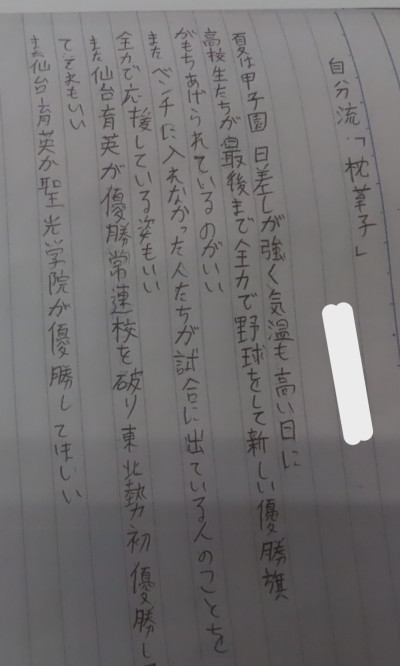 自分流「枕草子」
夏は甲子園 日差しが強く気温も高い日に
高校生たちが最後まで全力で野球をして新しい優勝旗
がもちあげられているのがいい
また ベンチに入れなかった人たちが試合に出ている人のことを
全力で応援している姿もいい
また仙台育英が優勝常連校を破り東北勢初優勝し
てそれもいい
また仙台育英か聖光学院が優勝してほしい